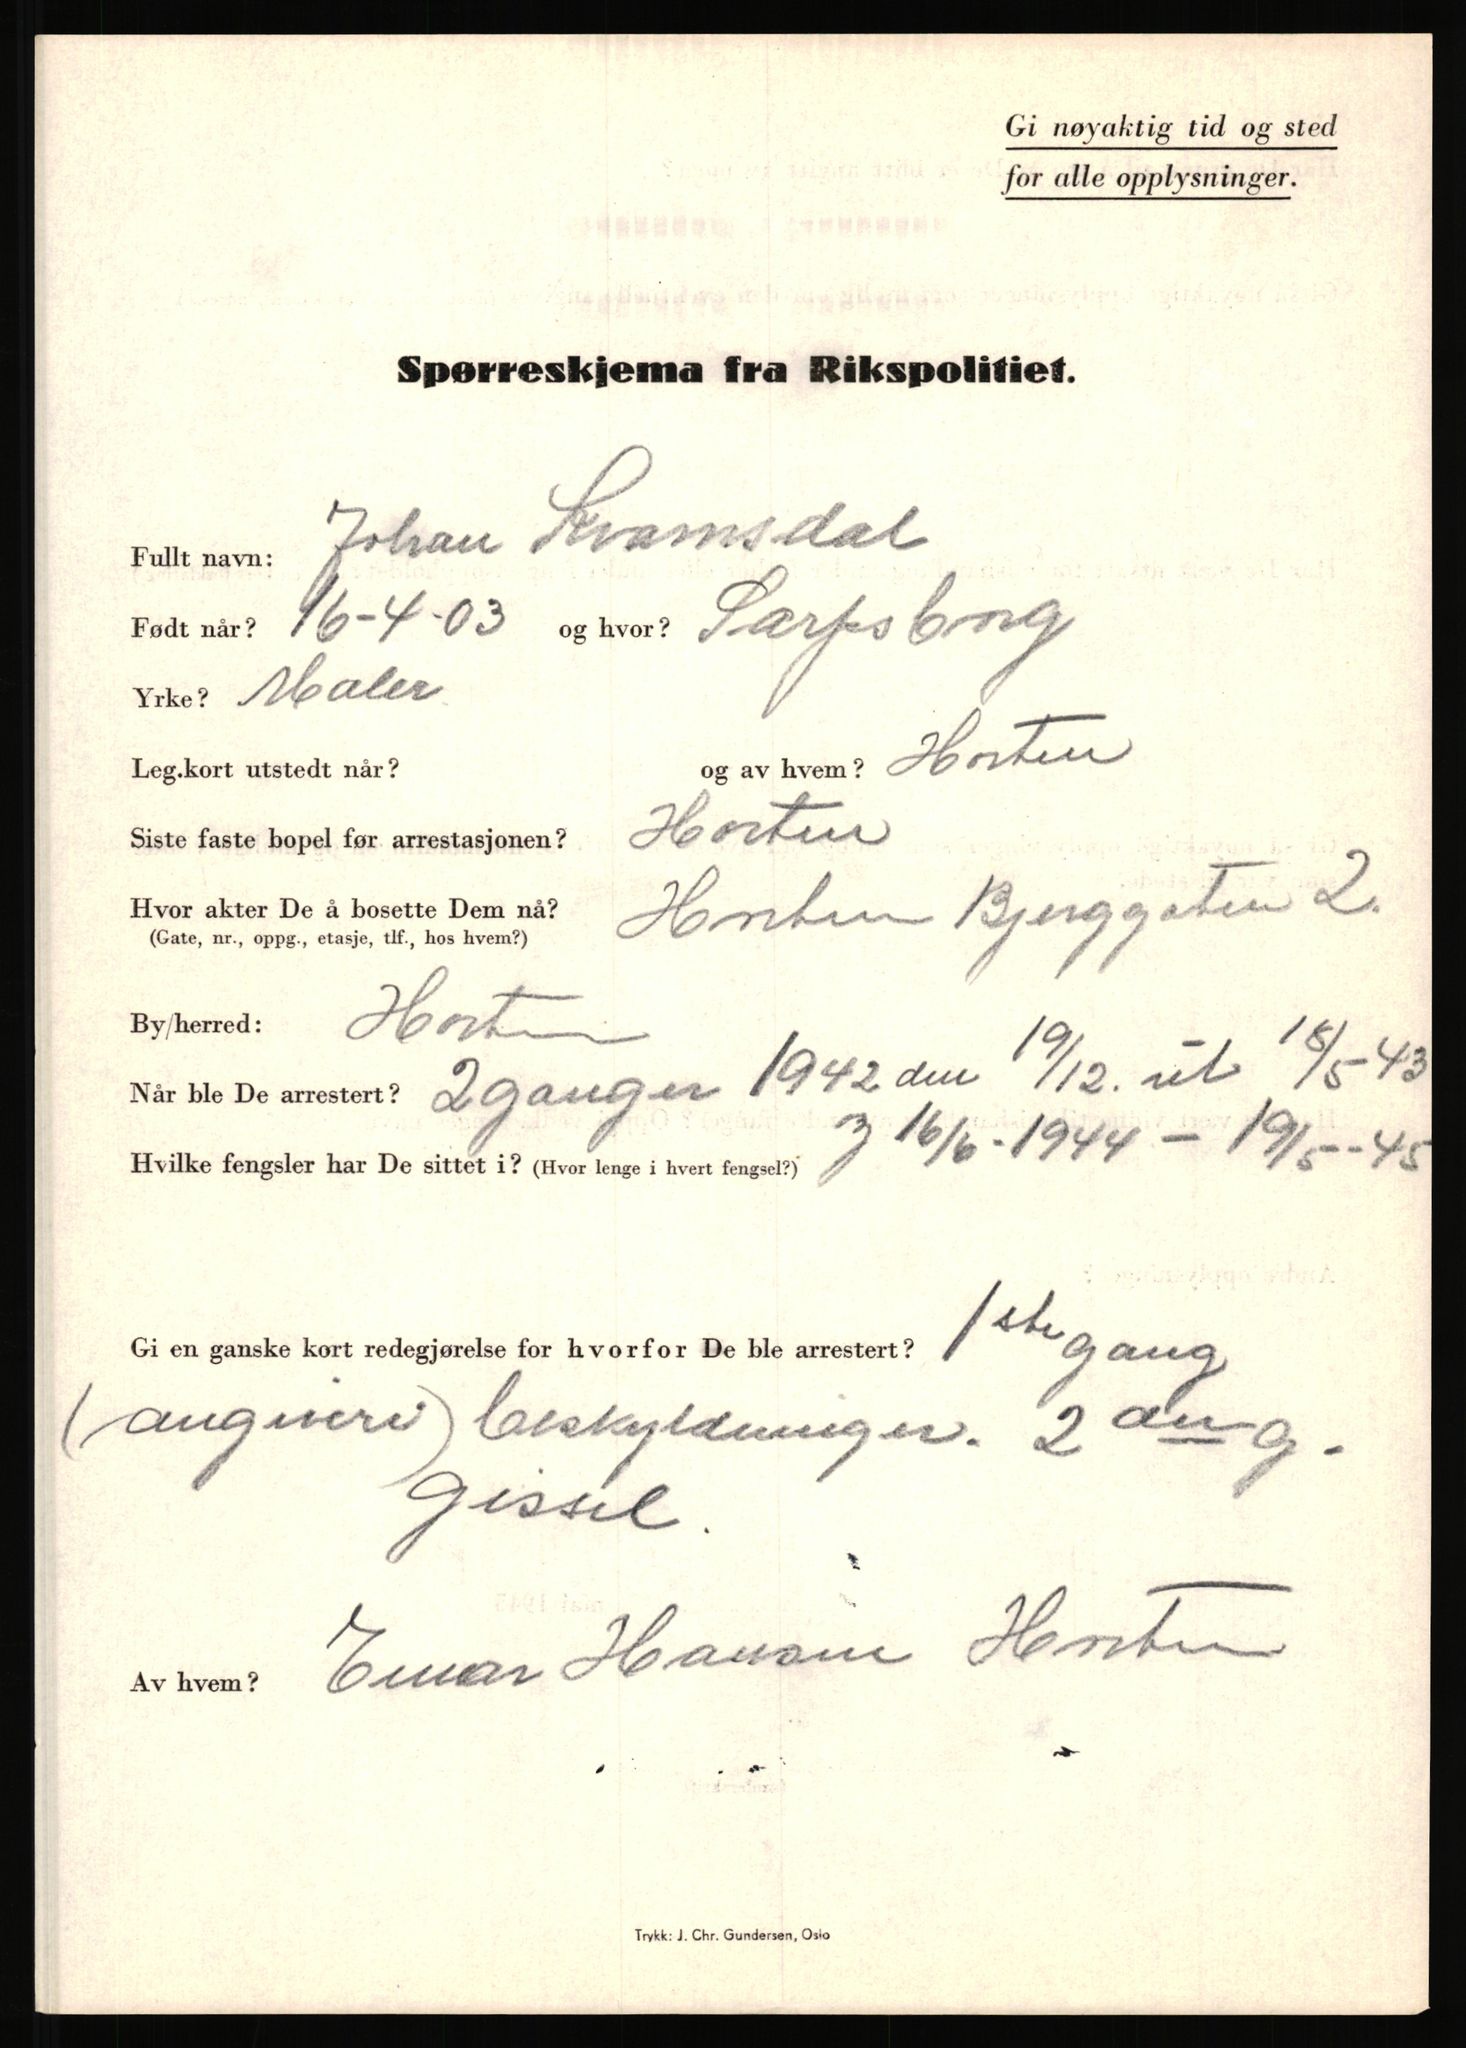 Gi nøyaktig tid og sted
for alle opplysninger.
Spørreskjema fra Rikspolitiet.
Fullt navn: Johan Kvamsdal
Født når? 16-4-03 og hvor? Sarpsborg
Yrke? Maler
Leg.kort utstedt når? og av hvem? Horten
Siste faste bopel før arrestasjonen? Horten
Hvor akter De å bosette Dem nå? Horten Bjerggaten 2.
(Gate, nr., oppg., etasje, tlf., hos hvem?)
By/herred: Horten
Når ble De arrestert? 2 ganger 1942 den 19/12. ut 18/5-43
Hvilke fengsler har De sittet i? (Hvor lenge i hvert fengsel?) 16/6-1944 - 19/5-45
Gi en ganske kort redegjørelse for hvorfor De ble arrestert? 1ste gang
(angiveri) beskyldninger. 2den g.
Gissel.
Av hvem? Einar Hansen Horten
Trykk: J. Chr. Gundersen, Oslo